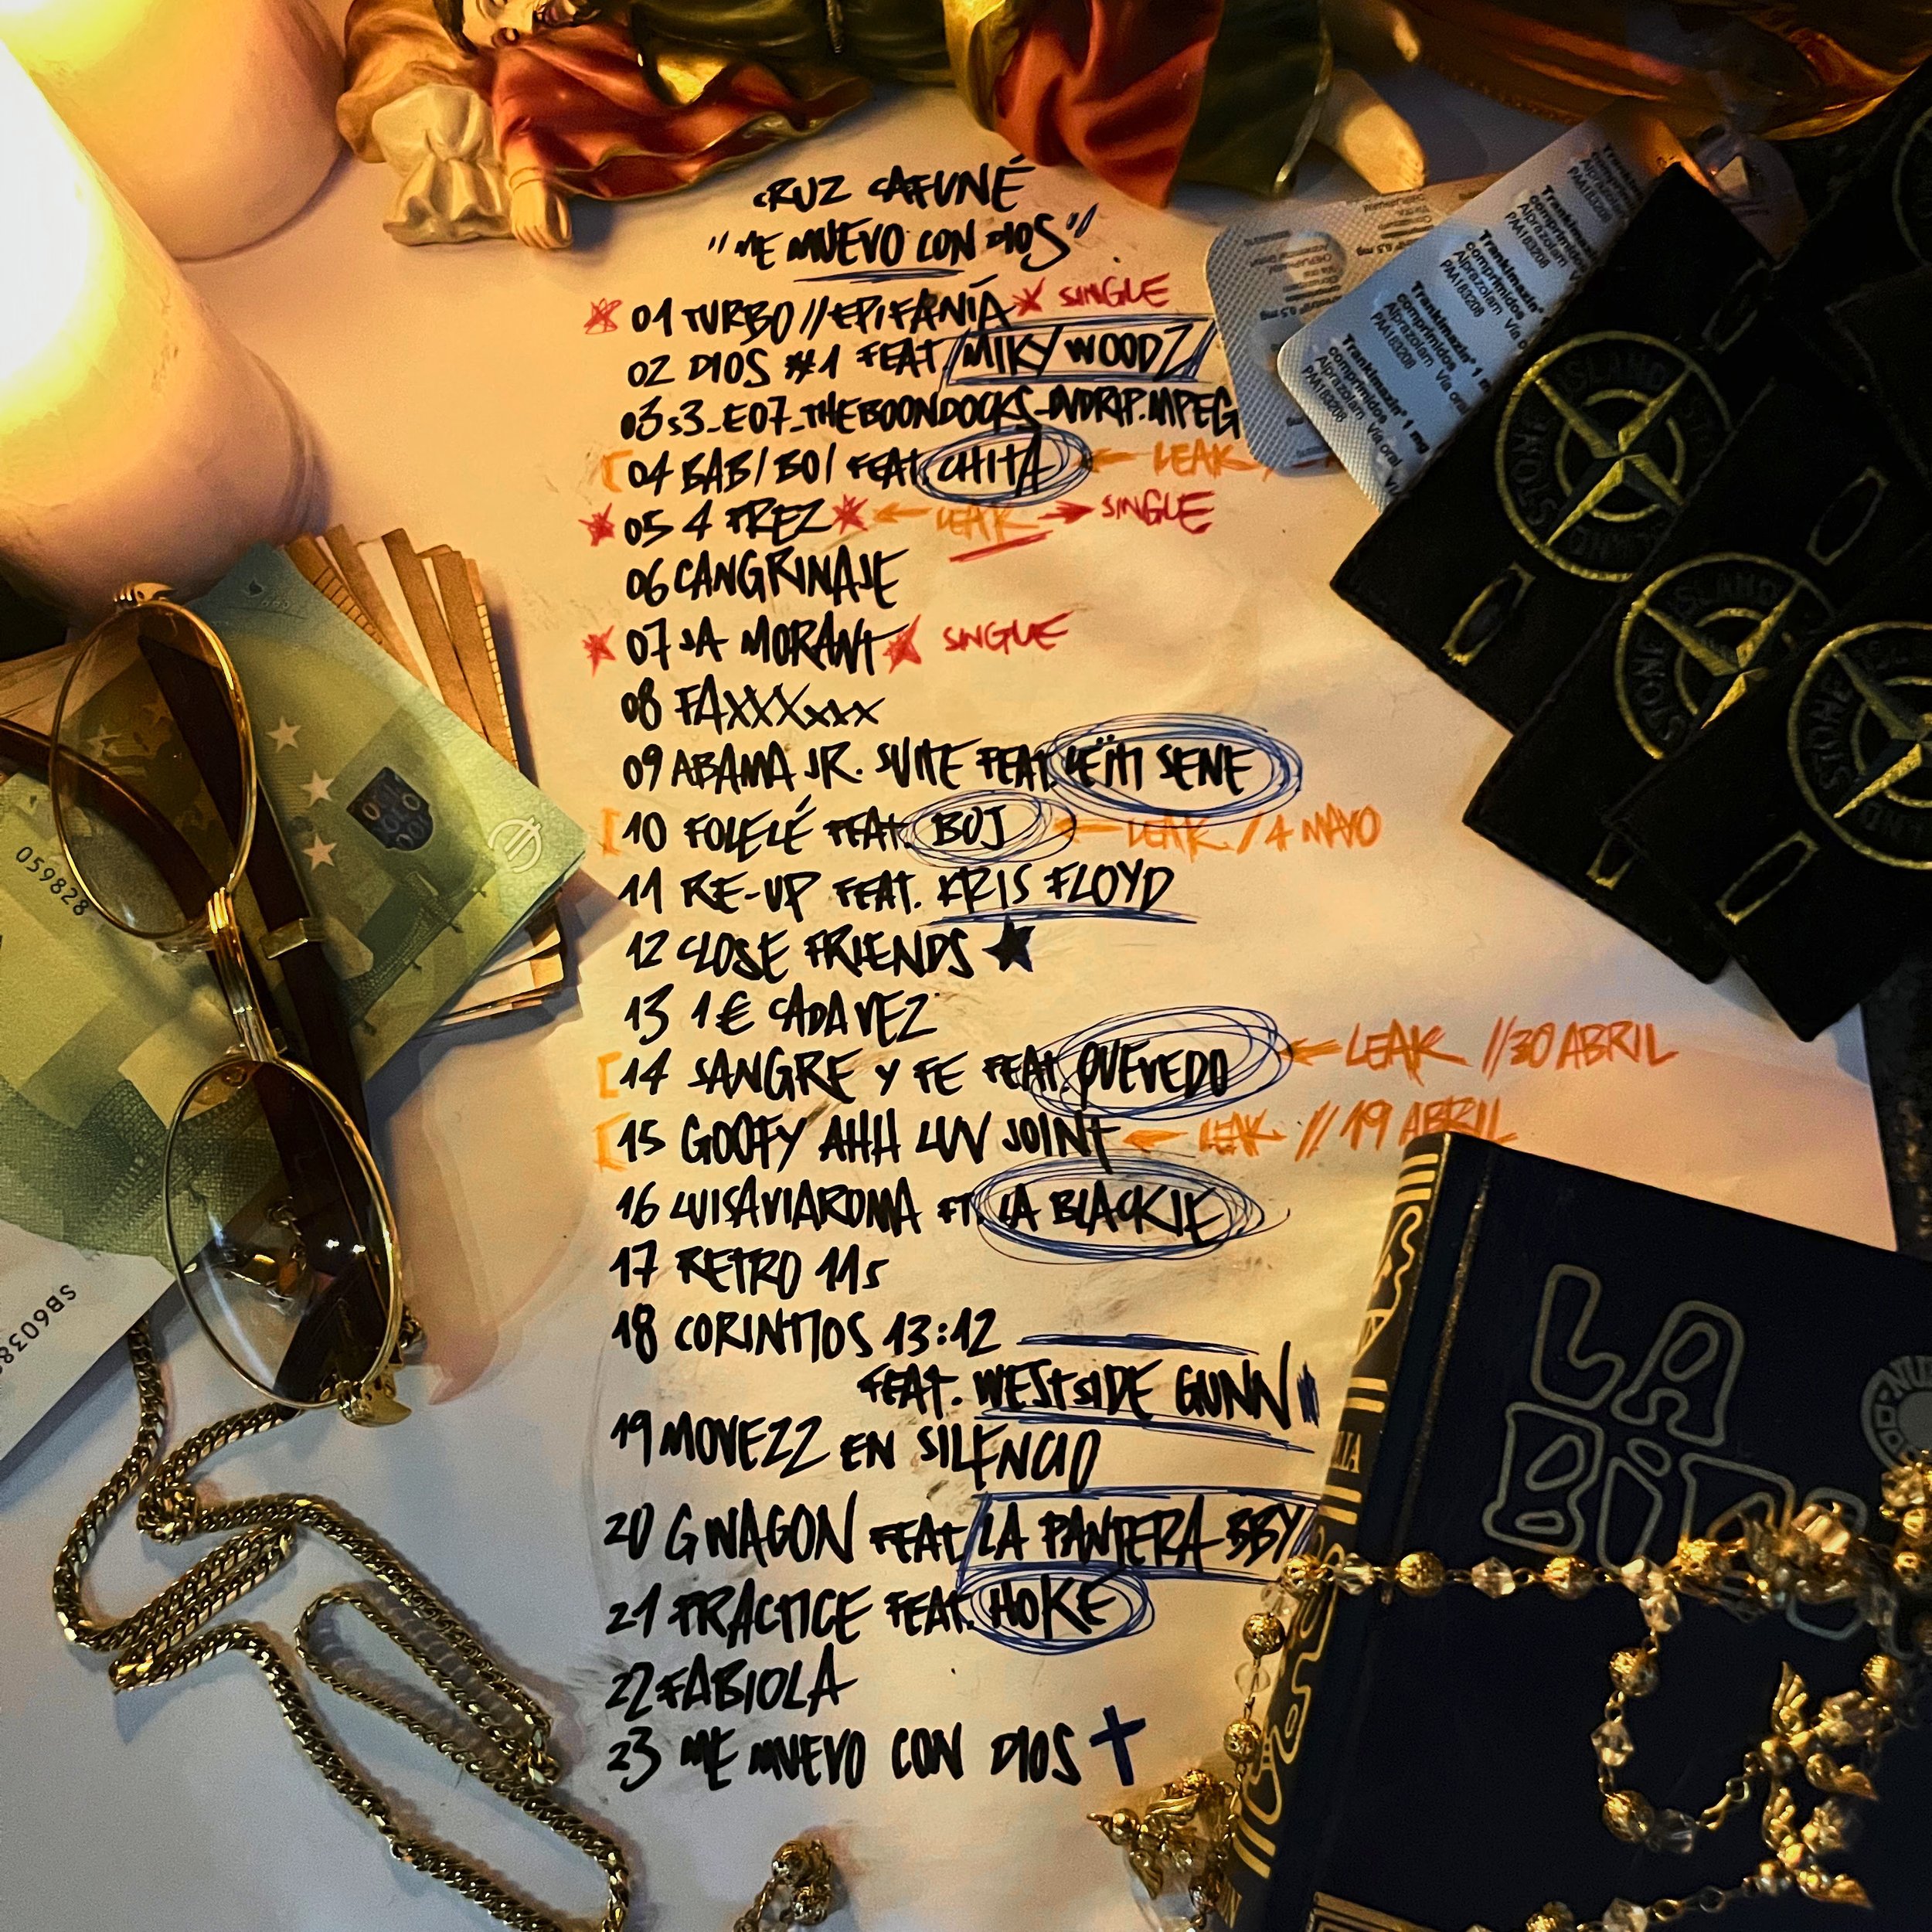 CRUZ CAFUNÉ
"ME MUEVO CON DIOS"
01 TURBO // EPIFANÍA SINGLE
02 DIOS #1 FEAT MIKY WOODZ
03 S3_E07_THEBOONDOCKS_DVDRIP.MPEG
04 BAB/BO/ FEAT. CHITA ← LEAK /
05 4 PREZ ← LEAK → SINGLE
06 CANGRINAJE
07 JA MORANT SINGLE
08 FAXXXxxx
09 ABAMA JR. SUITE FEAT. LEÏTI SENE
10 FOLELÉ FEAT. BOJ ← LEAK / 4 MAYO
11 RE-UP FEAT. KRIS FLOYD
12 CLOSE FRIENDS ★
13 1€ CADA VEZ
14 SANGRE Y FE FEAT. QUEVEDO ← LEAK // 30 ABRIL
15 GOOFY AHH LUV JOINT ← LEAK // 19 ABRIL
16 LUISAVIAROMA FT. LA BLACKIE
17 RETRO 11s
18 CORINTIOS 13:12
FEAT. WESTSIDE GUNN
19 MOVEZZ EN SILENCIO
20 G WAGON FEAT. LA PANTERA BBY
21 PRACTICE FEAT. HOKE
22 FABIOLA
23 ME MUEVO CON DIOS ✝
Trankimazin® 1 mg
comprimidos
Alprazolam Vía oral
PAA183208
Trankimazin® 1 mg
comprimidos
Alprazolam Vía oral
PAA183208
STONE ISLAND
STONE ISLAND
STONE ISLAND
059828
SB6038
LA
BIBL